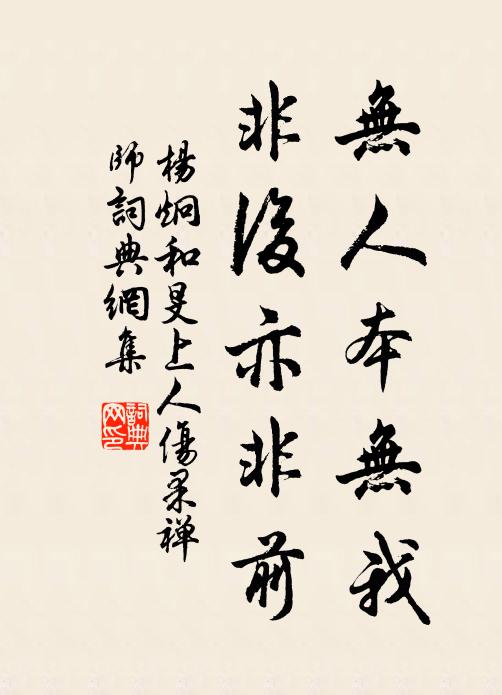 無人本無我
非後亦非前
楊炯和旻上人傷果禪
師詞典網集
詞典
网印